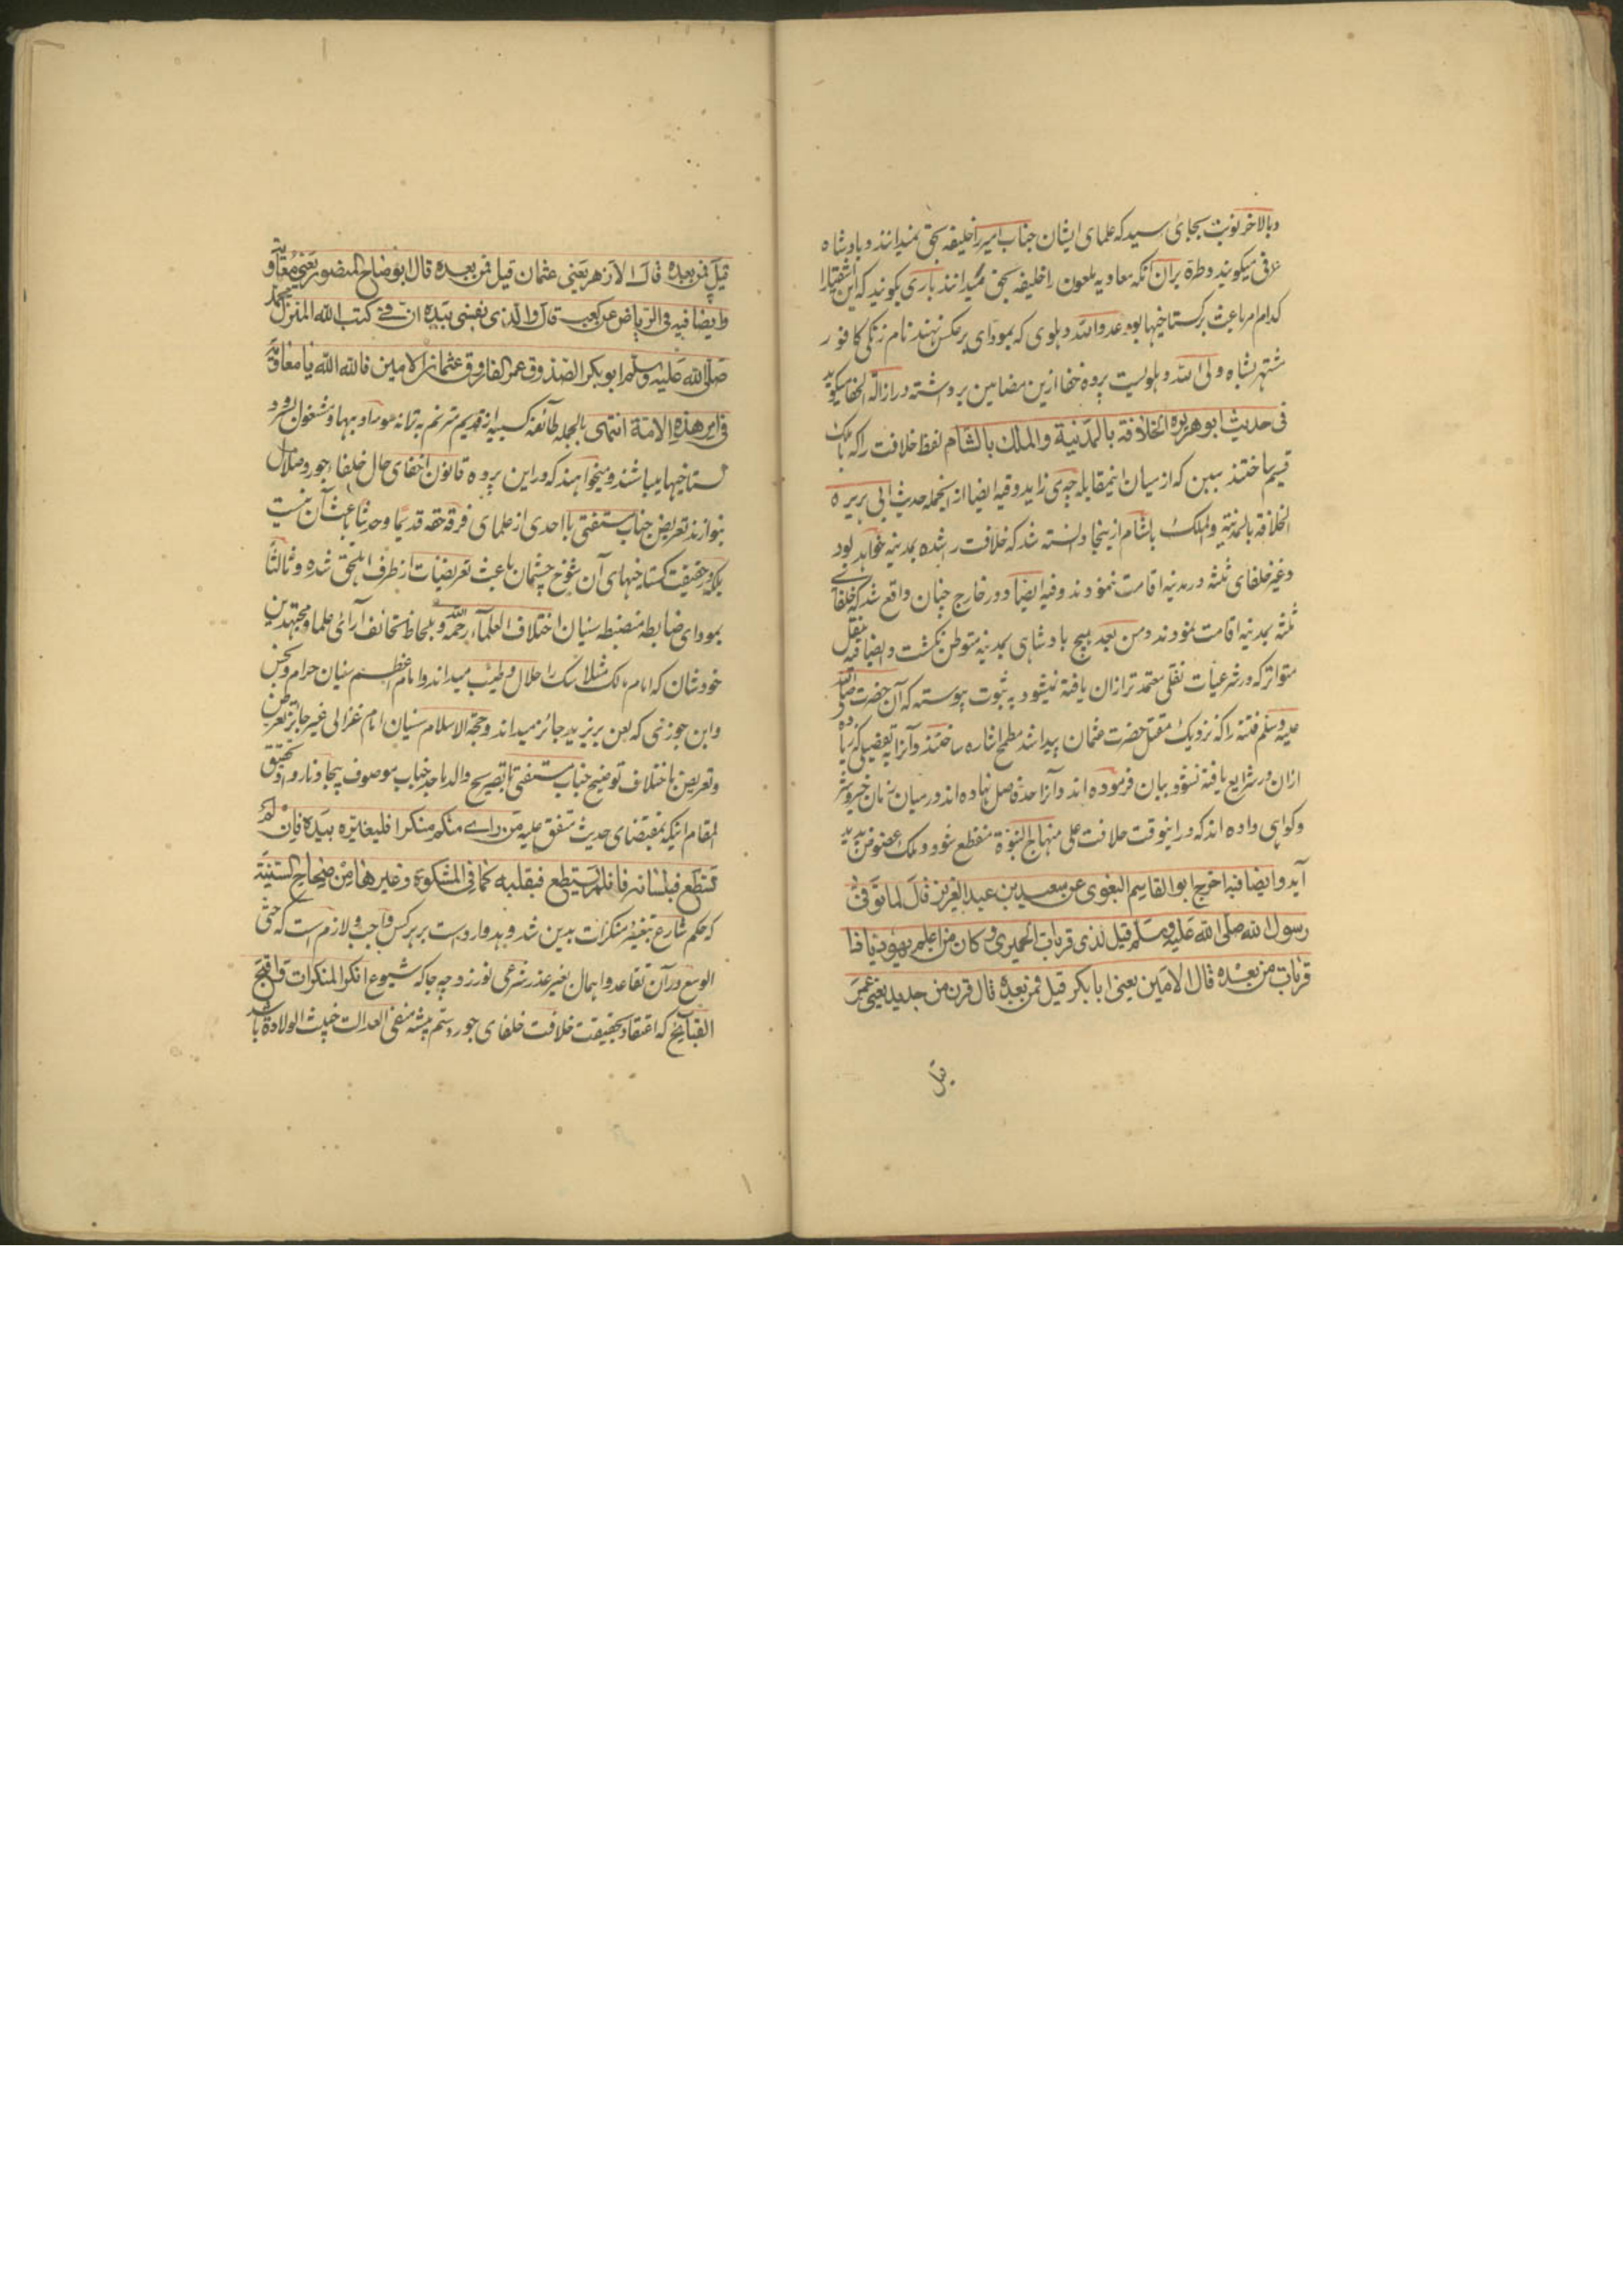 وبالاخر نوبت بجای رسید که علمای ایشان جناب امیر را خلیفه بحق نمیدانند و بادشاه
عرفی میگویند و طره بران آنکه معاویه ملعون را خلیفه بحق میدانند باری بگویند که این اشقیا را
کدام امر باعث بر گستاخیها بود عدو الله دهلوی که بمودای برعکس نهند نام زنگی کافور
مشتهر بشاه ولی الله دهلویست پرده خفا ازین مضامین برداشته در ازالة الخفا میگوید
فی حدیث ابو هریره الخلافة بالمدینة والملک بالشام لفظ خلافت را که با ملک
قسیم ساختند ببین که از میان اینمقابله چه می زاید وفیه ایضا از ینجمله حدیث ابی هریره
الخلافة بالمدینة والملک بالشام ازینجا دانسته شد که خلافت راشده بمدینه خواهد بود
و غیر خلفای ثلثه در مدینه اقامت ننمودند وفیه ایضا و در خارج چنان واقع شد که خلفای
ثلثه بمدینه اقامت نمودند ومن بعد هیچ بادشاهی بمدینه متوطن نگشت وایضا فیه بنقل
متواتر که در شرعیات نقلی معتمد تر ازان یافته نمیشود به ثبوت پیوسته که آن حضرت صلی الله
علیه وسلم فتنه را که نزدیک مقتل حضرت عثمان پیدا شد مطمح اشاره ساختند و آنرا به تفصیلی که زیاده
ازان در شرایع یافته نشود بیان فرموده اند و آنرا حد فاصل نهاده اند در میان زمان خیر و شر
و گواهی داده اند که در اینوقت خلافت علی منهاج النبوة منقطع شود و ملک عضوض پدید
آید وایضا فیه اخرج ابو القاسم البغوی عن سعید بن عبد العزیز قال لما توفی
رسول الله صلی الله علیه وسلم قیل لذی قربات الحمیری وکان من اعلم یهود یا ذا
قربات من بعده قال الامین یعنی ابا بکر قیل فمن بعده قال قرن من حدید یعنی عمر
قیل
قیل فمن بعده قال الازهر یعنی عثمان قیل فمن بعده قال ابو ضاح المنصور یعنی معاویه
وایضا فیه فی الریاض عن کعب قال والذی نفسی بیده ان فی کتب الله المنزل محمد
صلی الله علیه وسلم ابو بکر الصدوق عمر الفاروق عثمان الامین فالله الله یا معاویة
فی امر هذه الامة انتهی بالجمله طائفه سنیه از قدیم مترنم به ترانه و مشغول بسرود
گستاخیها میباشند و میخواهند که در این پرده قانون اخفای حال خلفاء جور و ضلال
بنوازند تعریض جناب مستفتی با احدی از علمای فرقه حقه قدیما وحدیثا باعث آن نیست
بلکه در حقیقت گستاخیهای آن شوخ چشمان باعث تعریضات از طرف اهلحق شده وثالثا
بمودای ضابطه منضبطه سنیان اختلاف العلماء رحمة الله و بلحاظ تخالف آرای علما ومجتهدین
خودشان که امام مالک مثلا سگ را حلال وطیب میداند و امام اعظم سنیان حرام ونجس
وابن جوزی که لعن بر یزید جائز میداند و حجة الاسلام سنیان امام غزالی غیر جائز طعن
وتعریض باختلاف توضیح جناب مستفتی با تصریح والد ماجد جناب موصوف بیجا و ناروا و تحقیق
المقام اینکه بمقتضای حدیث متفق علیه من رای منکم منکرا فلیغیره بیده فان لم
یستطع فبلسانه فان لم یستطع فبقلبه کما فی المشکوة وغیرها من صحاح السنیة
که حکم شارع بتغیر منکرات بدین شد و مد وارد است بر هر کس واجب و لازم است که حتی
الوسع در آن تقاعد و اهمال بغیر عذر شرعی نورزد چه جا که شیوع انکر المنکرات واقبح
القبایح که اعتقاد بحقیقت خلافت خلفای جور و ستم پیشه منفی العدالت خبیث الولادة باشد